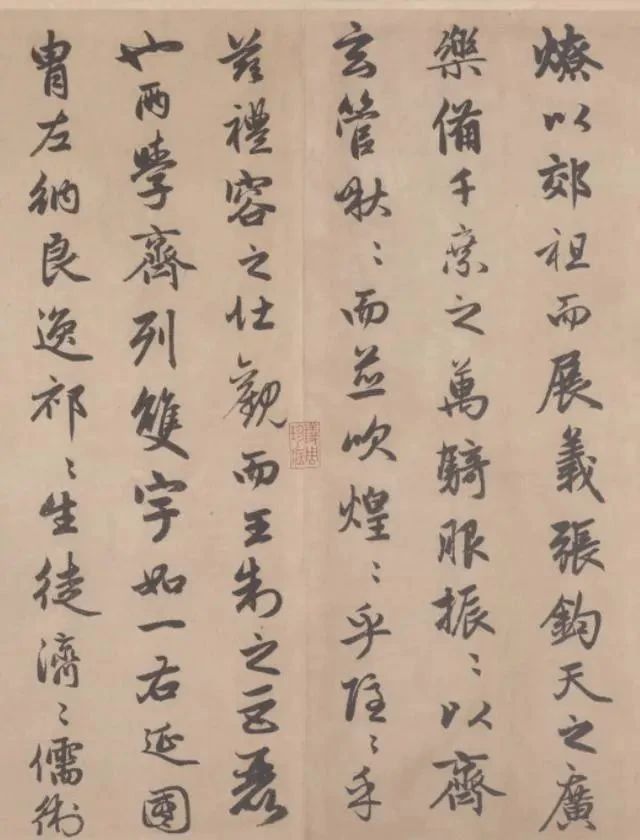 燎以郊祖而展義張鈞天之廣
樂備千乘之萬騎服振〻以齊
玄管啾〻而並吹煌〻乎隱〻乎
茲禮容之壯觀而王制之巨麗
也兩學齊列雙宇如一右延國
胄左納良逸祁〻生徒濟〻儒術